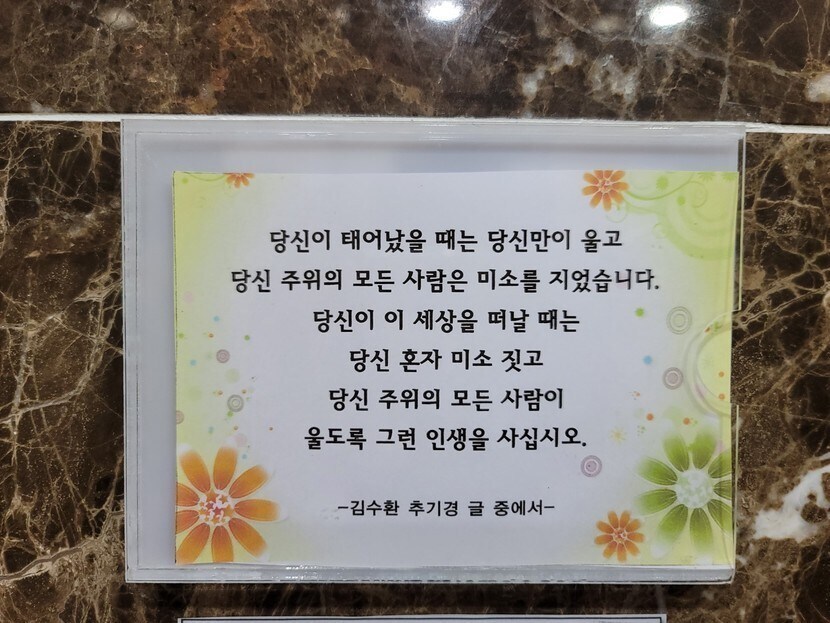 당신이 태어났을 때는 당신만이 울고
당신 주위의 모든 사람은 미소를 지었습니다.
당신이 이 세상을 떠날 때는
당신 혼자 미소 짓고
당신 주위의 모든 사람이
울도록 그런 인생을 사십시오.
-김수환 추기경 글 중에서-